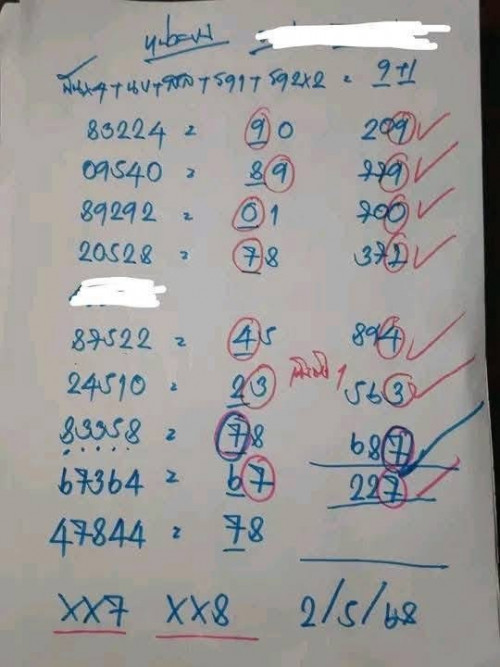 หน่วยบน
= 9+1
83224 = 90 209 ✓
09540 = 89 779 ✓
89292 = 01 700 ✓
20528 = 78 377 ✓
87522 = 45 894 ✓
24510 = 23 1 563 ✓
83358 = 78 687 ✓
67364 = 67 227 ✓
47844 = 78
XX7 XX8 2/5/68